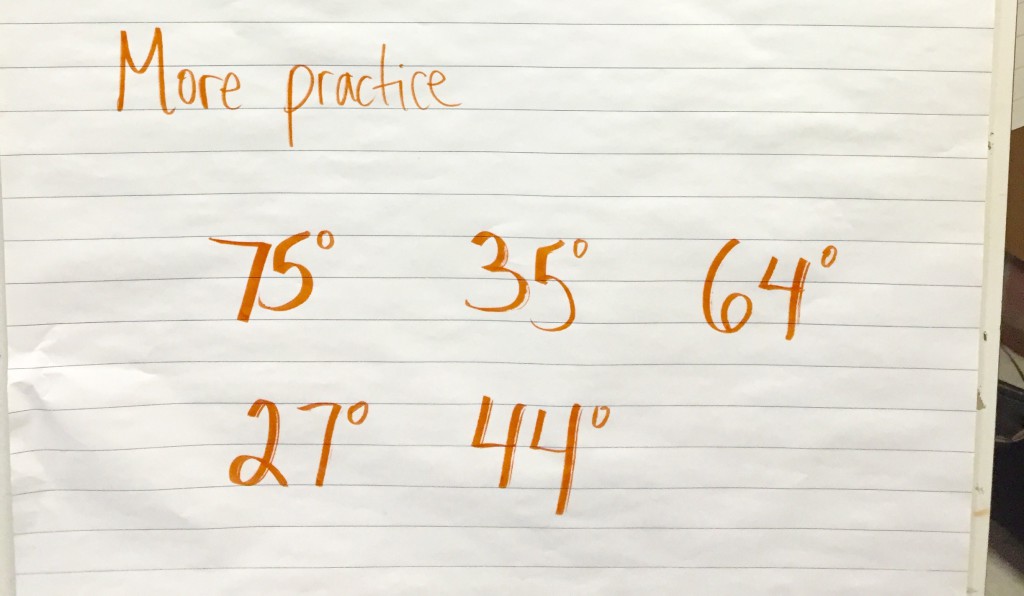 More practice
75° 35° 64°
27° 44°